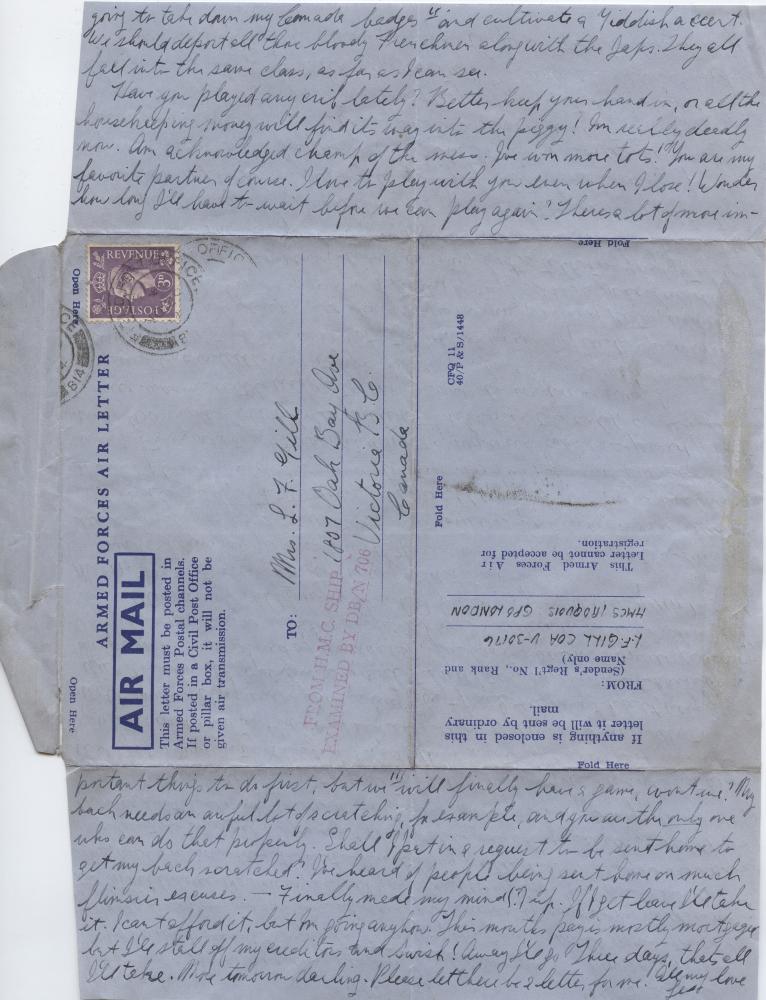 going to take down my Canada badges and cultivate a Yiddish accent.
We should deport all those bloody Frenchmen along with the Japs. They all
fall into the same class, as far as I can see.
Have you played any crib lately? Better keep your hand in, or all the
housekeeping money will find its way into the piggy! I'm really deadly
now. Am acknowledged champ of the mess. I've won more tots! You are my
favorite partner of course. I love to play with you even when I lose! Wonder
how long I'll have to wait before we can play again? There's a lot of more im-
Open Here
REVENUE
POSTAGE
3D
OFFICE
814
ARMED FORCES AIR LETTER
AIR MAIL
This letter must be posted in
Armed Forces Postal channels.
If posted in a Civil Post Office
or pillar box, it will not be
given air transmission.
Open Here
TO:
Mrs. L. F. Gill
1807 Oak Bay Ave
Victoria B.C.
Canada
FROM H.M.C. SHIP
EXAMINED BY DB/N 706
Fold Here
CFQ 11
40/P & S/1448
Fold Here
This Armed Forces Air
Letter cannot be accepted for
registration.
HMCS IROQUOIS GPO LONDON
L.F. GILL COA V-30176
(Sender's Regt'l No., Rank and
Name only)
FROM:
If anything is enclosed in this
letter it will be sent by ordinary
mail.
Fold Here
portant things to do first, but we will finally have a game, won't we? My
back needs an awful lot of scratching, for example, and you are the only one
who can do that properly. Shall I put in a request to be sent home to
get my back scratched? I've heard of people being sent home on much
flimsier excuses. — Finally made my mind (?) up. If I get leave I'll take
it. I can't afford it, but I'm going anyhow. This months pay is mostly mortgaged
but I'll stall off my creditors and swish! Away I'll go. Three days, that's all
I'll take. More tomorrow darling. Please let there be a letter for me. All my love